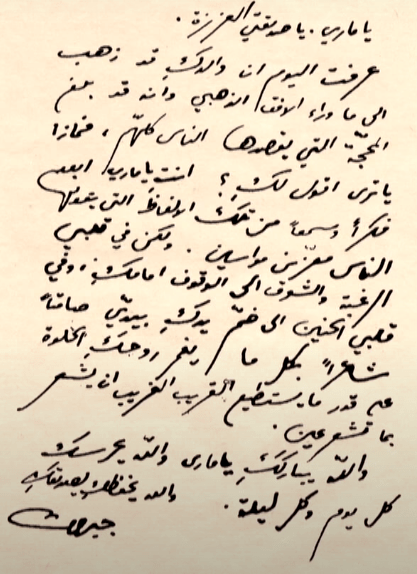 يا ماري. يا صديقتي العزيزة.
عرفت اليوم ان والدكِ قد ذهب
الى ما وراء الافق الذهبي وأنه قد بلغ
المحجّة التي يقصدها الناس كلهم، فماذا
يا ترى اقول لكِ؟ انتِ يا ماري ابعد
فكراً وسمعاً من تلك الالفاظ التي يقولها
الناس معزّين مواسين. ولكن في قلبي
الرغبة والشوق الى الوقوف امامكِ، وفي
قلبي الحنين الى ضمّ يدكِ بيديّ صامتاً
شاعراً بكل ما يغمر روحكِ الحلوة
على قدر ما يستطيع القريب الغريب ان يشعر
بما تشعرين.
والله يباركِ يا ماري والله يحرسك
كل يوم وكل ليلة. والله يحفظكِ لصديقكِ
جبران